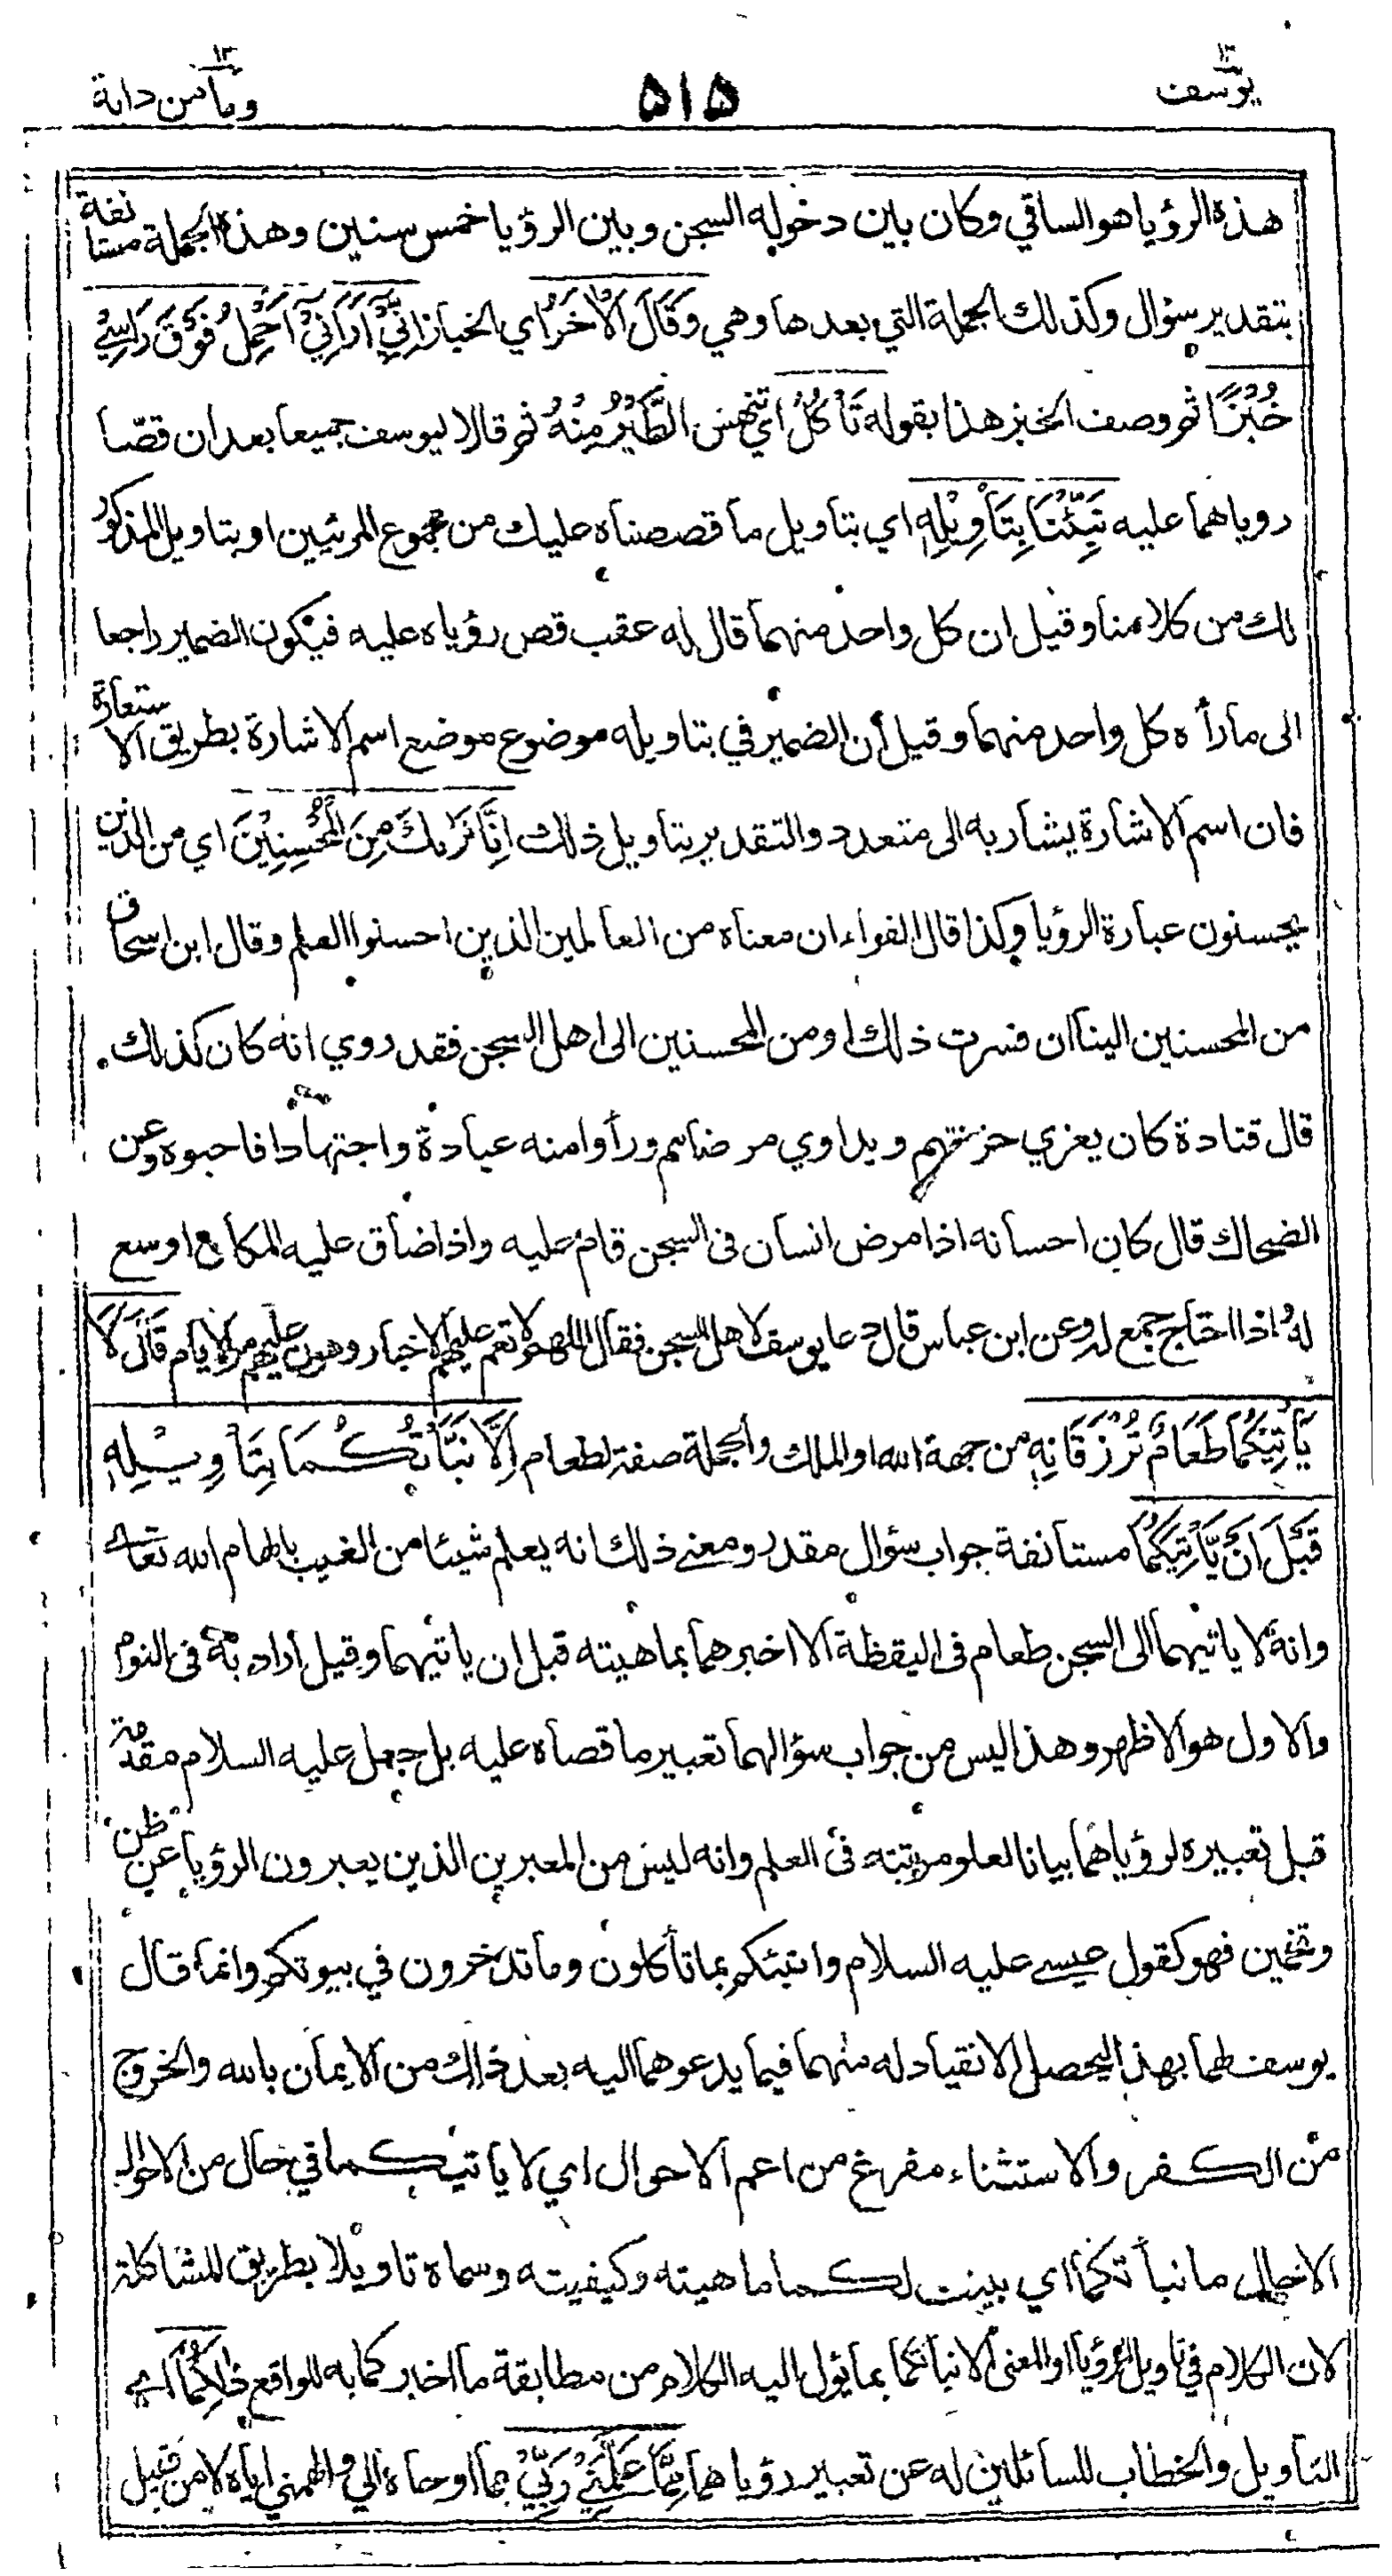 يوسف ١٢
٥١٥
وما من دابة ١٢
هذه الرؤيا هو الساقي وكان بين دخوله السجن وبين الرؤيا خمس سنين وهذه الجملة مستانفة
بتقدير سؤال وكذلك الجملة التي بعدها وهي وَقَالَ الْاٰخَرُ اي الخباز اِنِّيْ اَرَانِيْ اَحْمِلُ فَوْقَ رَاْسِيْ
خُبْزًا ثم وصف الخبز هذا بقوله تَاْكُلُ اي تنهس الطَّيْرُ مِنْهُ ثم قالا ليوسف جميعا بعد ان قصّا
روياهما عليه نَبِّئْنَا بِتَاْوِيْلِهٖ اي بتاويل ما قصصناه عليك من مجموع المرئيين او بتاويل المذكور
لك من كلامنا وقيل ان كل واحد منهما قال له عقب قص رؤياه عليه فيكون الضمير راجعا
الى ما رأه كل واحد منهما وقيل أن الضمير في بتاويله موضوع موضع اسم الاشارة بطريق الاستعارة
فان اسم الاشارة يشار به الى متعدد والتقدير بتاويل ذلك اِنَّا نَرٰىكَ مِنَ الْمُحْسِنِيْنَ اي من الذين
يحسنون عبارة الرؤيا وكذا قال الفراء ان معناه من العالمين الذين احسنوا العلم وقال ابن اسحاق
من المحسنين الينا ان فسرت ذلك او من المحسنين الى اهل السجن فقد روي انه كان كذلك.
قال قتادة كان يعزي حزينهم ويداوي مرضاهم ورأوا منه عبادة واجتهادا فاحبوه وعن
الضحاك قال كان احسانه اذا مرض انسان في السجن قام عليه واذا ضاق عليه المكان اوسع
له اذا احتاج جمع له وعن ابن عباس قال دعا يوسف لاهل السجن فقال اللهم لا تعم عليهم الاخبار وهون عليهم مر الايام قَالَ لَا
يَاْتِيْكُمَا طَعَامٌ تُرْزَقَانِهٖ من جهة الله او الملك والجملة صفة لطعام اِلَّا نَبَّاْتُكُمَا بِتَاْوِيْلِهٖ
قَبْلَ اَنْ يَّاْتِيَكُمَا مستانفة جواب سؤال مقدر ومعنى ذلك انه يعلم شيئا من الغيب بالهام الله تعالى
وانه لا ياتيهما الى السجن طعام في اليقظة الا اخبرهما بماهيته قبل ان ياتيهما وقيل أراد به في النوم
والاول هو الاظهر وهذا ليس من جواب سؤالهما تعبير ما قصاه عليه بل جعل عليه السلام مقدمة
قبل تعبيره لرؤياهما بيانا لعلو مرتبته في العلم وانه ليس من المعبرين الذين يعبرون الرؤيا عن ظن
وتخمين فهو كقول عيسى عليه السلام وانبئكم بما تأكلون وما تدخرون في بيوتكم وانما قال
يوسف لهما بهذا ليحصل الانقياد له منهما فيما يدعوهما اليه بعد ذلك من الايمان بالله والخروج
من الكفر والاستثناء مفرغ من اعم الاحوال اي لا ياتيكما في حال من الاحوال
الا حال ما نبأتكما اي بينت لكما ماهيته وكيفيته وسماه تاويلا بطريق المشاكلة
لان الكلام في تاويل الرؤيا او المعنى الا نبأتكما بما يؤل اليه الكلام من مطابقة ما اخبركما به للواقع ذٰلِكُمَا اي
التاويل والخطاب للسائلين له عن تعبير رؤياهما مِمَّا عَلَّمَنِيْ رَبِّيْ بما اوحاه الي والهمني اياه لا من قبيل